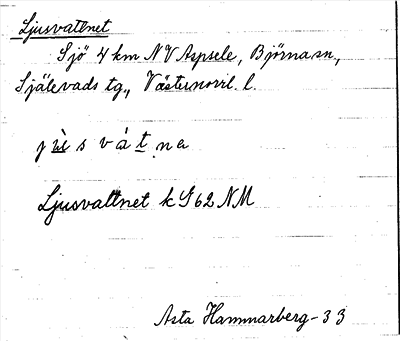 Ljusvattnet
Sjö 4 km NV Aspsele, Björna sn,
Själevads tg., Västernorrl. l.
jùsvátna
Ljusvattnet k G 62 NM
Asta Hammarberg-33